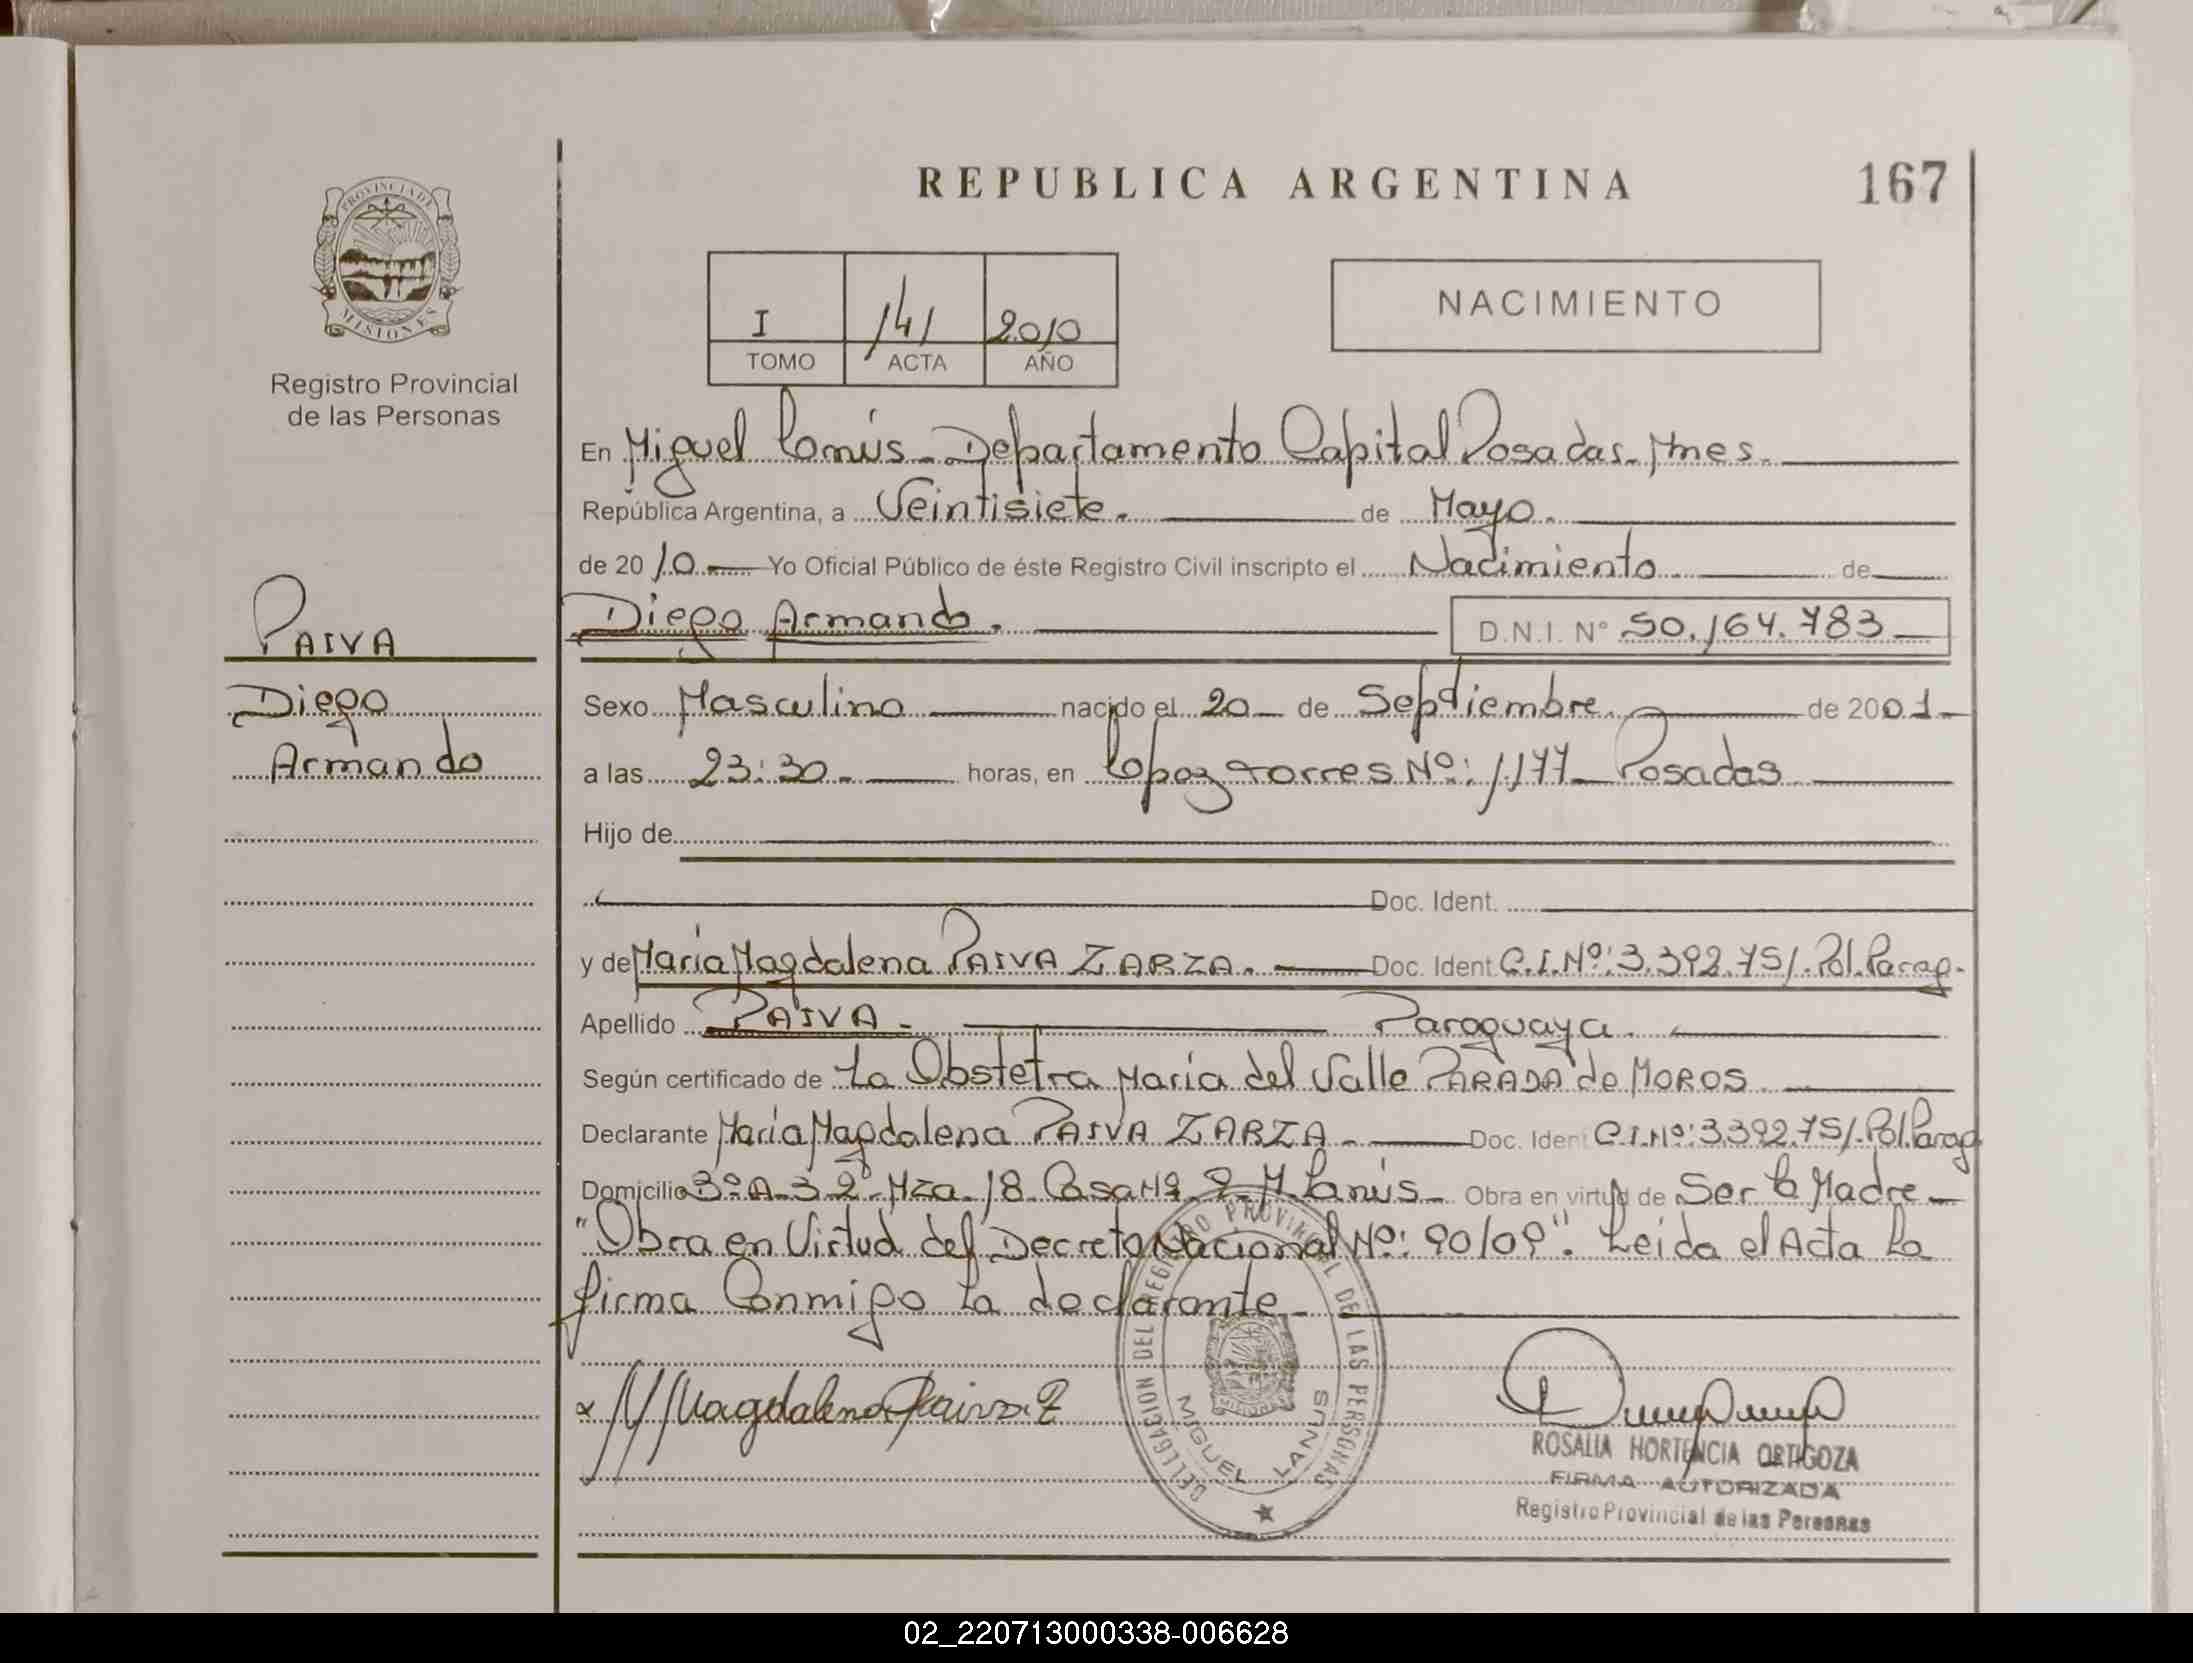 REPUBLICA ARGENTINA
167
PROVINCIA DE
MISIONES
Registro Provincial
de las Personas
I 141 2010
TOMO ACTA AÑO
NACIMIENTO
En Miguel Lanús - Departamento Capital Posadas - Mnes.
República Argentina, a Veintisiete. de Mayo.
de 2010 Yo Oficial Público de éste Registro Civil inscripto el Nacimiento de
PAIVA
Diego
Armando
Diego Armando. D.N.I. N° 50.164.783
Sexo Masculino nacido el 20 de Septiembre de 2001
a las 23:30 horas, en Lopez torres Nº: 1177 Posadas
Hijo de
Doc. Ident.
y de María Magdalena PAIVA ZARZA. Doc. Ident C.I.Nº: 3.392.751. Pol. Parag.
Apellido PAIVA - Paraguaya.
Según certificado de La Obstetra María del Valle PARADA de MOROS
Declarante María Magdalena PAIVA ZARZA - Doc. Iden C.I.Nº: 3.392.751. Pol. Parag
Domicilio 3º A-3 2º Mza. 18 Casa Nº 9 - M. Lanús - Obra en virtud de Ser la Madre -
"Obra en Virtud del Decreto Nacional Nº: 90/09". Leida el Acta la
firma Conmigo la declarante -
x M Magdalena Paiva Z
DELEGACION DEL REGISTRO PROVINCIAL DE LAS PERSONAS
MIGUEL LANUS
ROSALIA HORTENCIA ORTIGOZA
FIRMA AUTORIZADA
Registro Provincial de las Personas
02_220713000338-006628